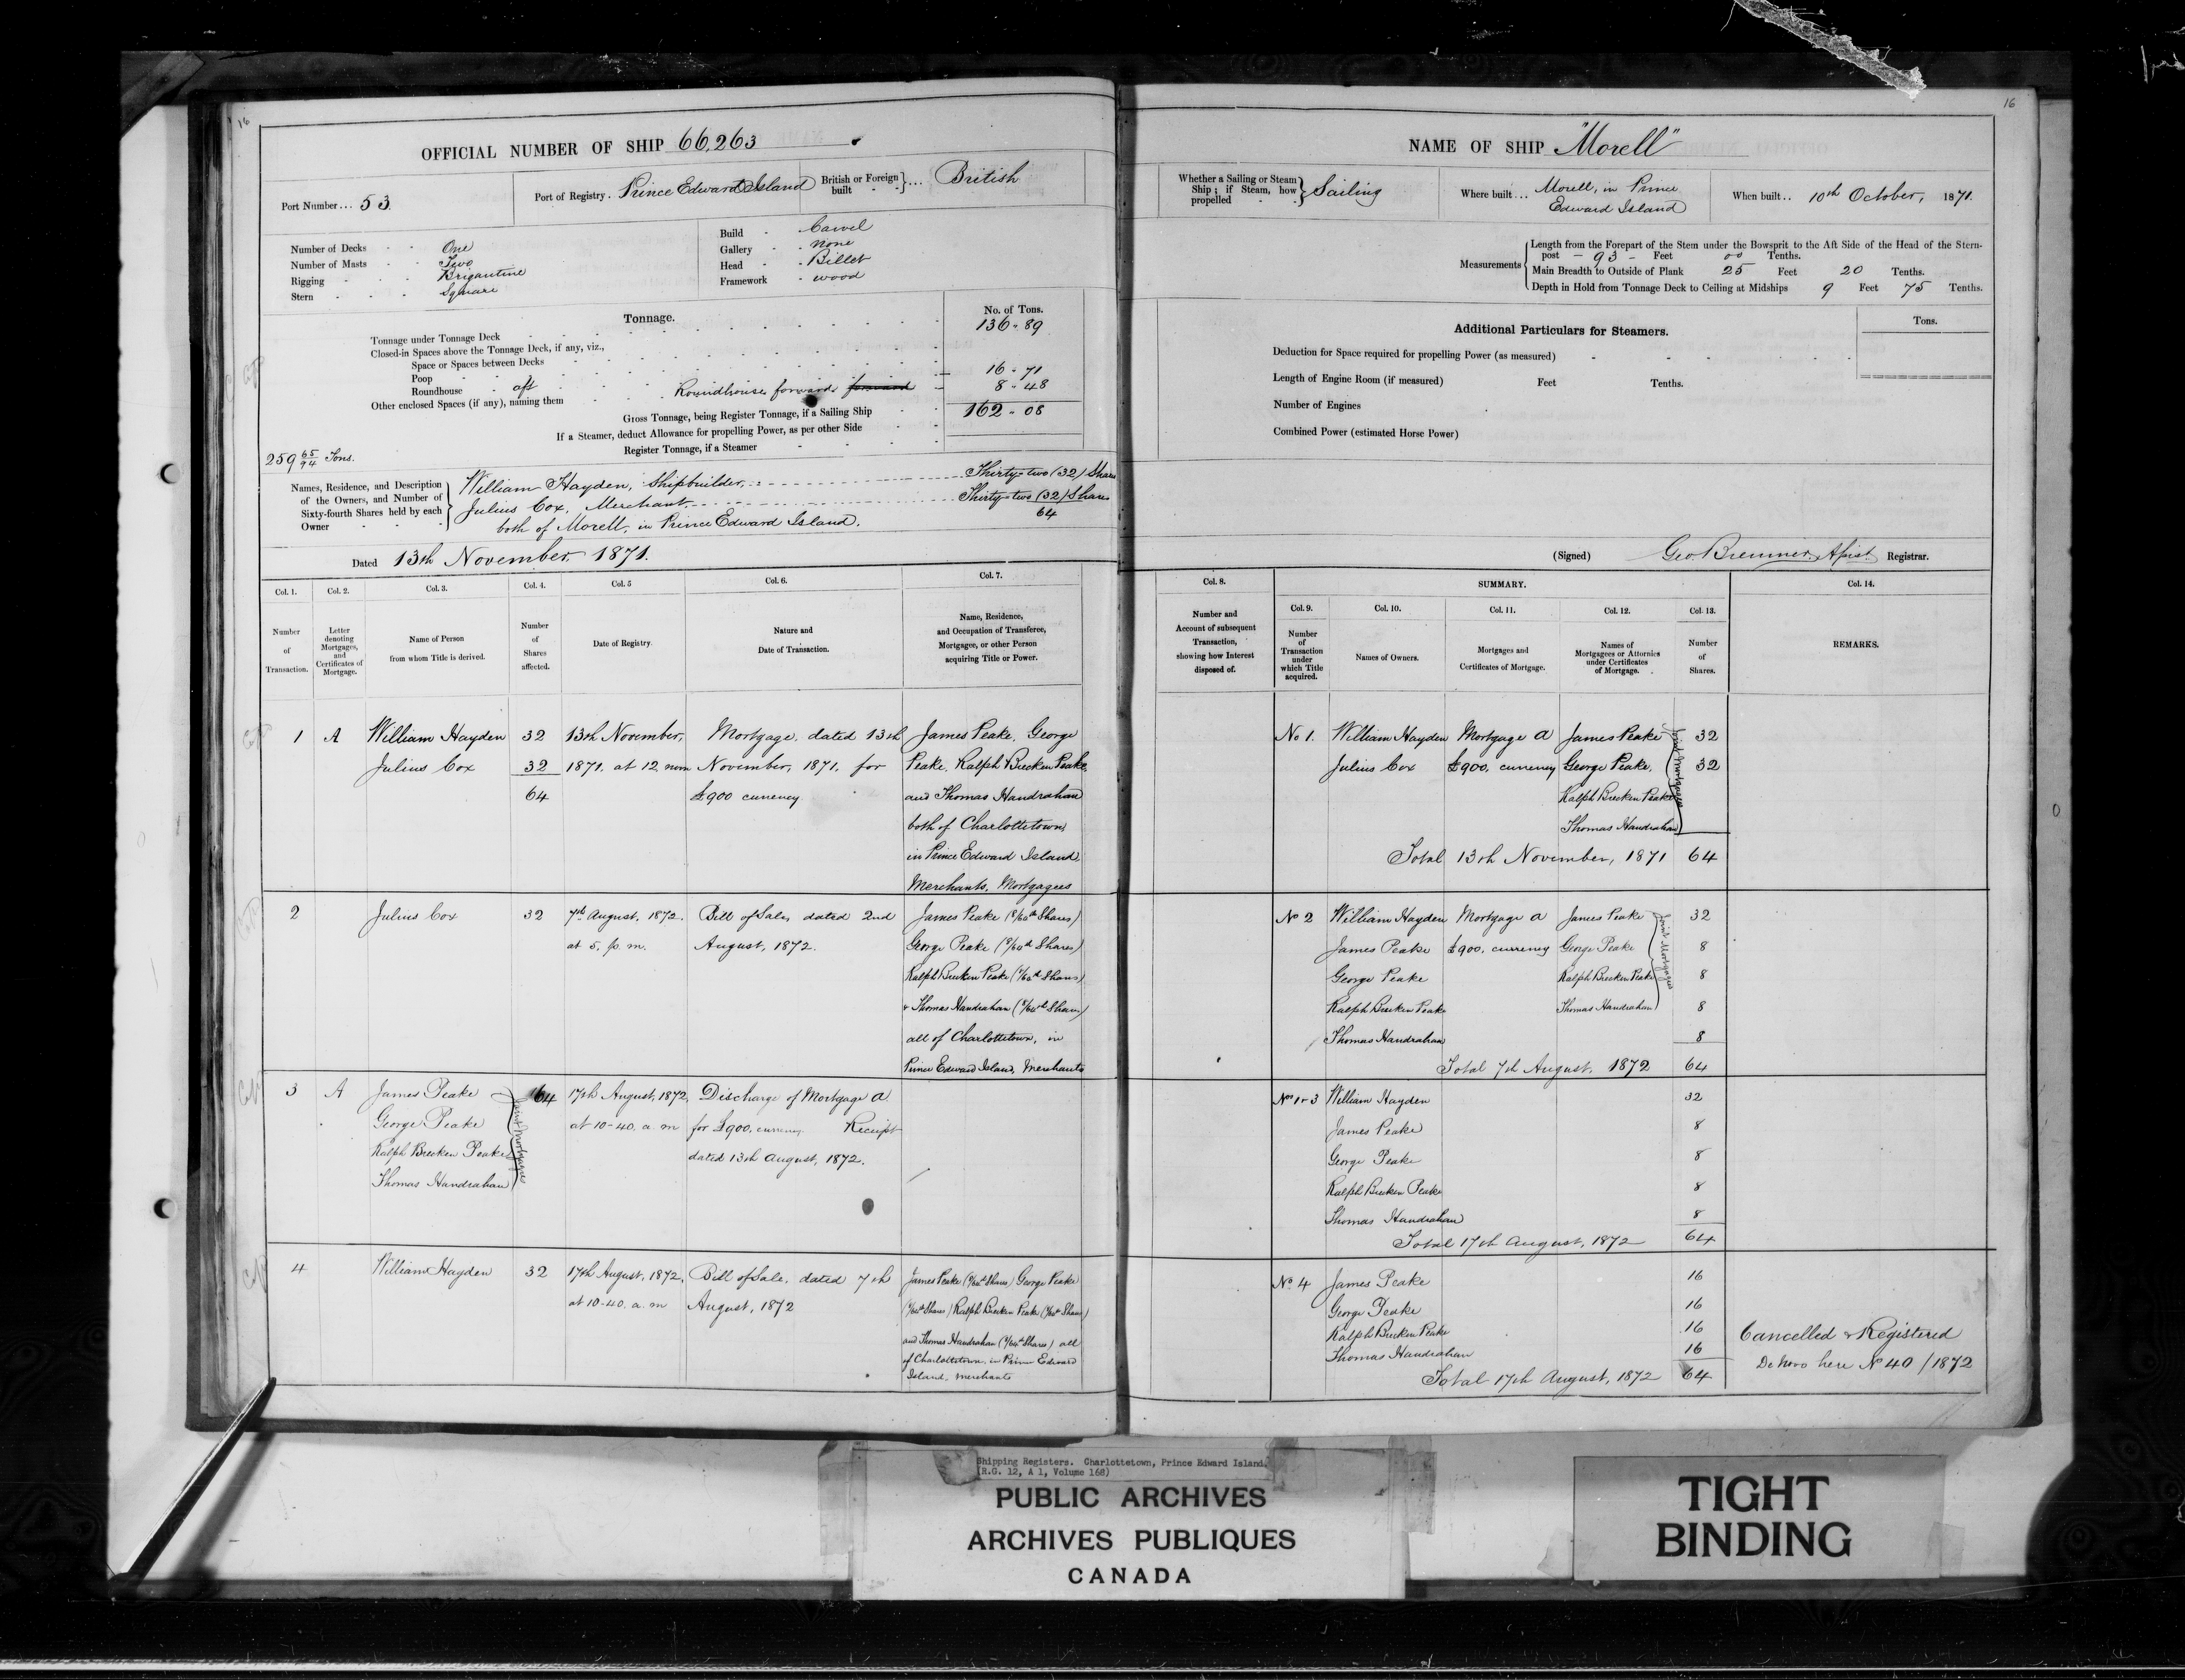 16
OFFICIAL NUMBER OF SHIP 66,263
Port Number... 53
Port of Registry. Prince Edward Island
British or Foreign built } ... British
Number of Decks - - One
Number of Masts - - Two
Rigging - - - Brigantine
Stern - - - Square
Build - Carvel
Gallery - none
Head - Billet
Framework - wood
Tonnage.
No. of Tons.
Tonnage under Tonnage Deck 136 - 89
Closed-in Spaces above the Tonnage Deck, if any, viz.,
Space or Spaces between Decks
Poop
Roundhouse - aft 16 - 71
Other enclosed Spaces (if any), naming them Roundhouse forward forward 8 - 48
Gross Tonnage, being Register Tonnage, if a Sailing Ship 162 - 08
If a Steamer, deduct Allowance for propelling Power, as per other Side
Register Tonnage, if a Steamer
259 65/94 Tons.
Names, Residence, and Description of the Owners, and Number of Sixty-fourth Shares held by each Owner
William Hayden, Shipbuilder, Thirty-two (32) Shares
Julius Cox, Merchant, Thirty-two (32) Shares
both of Morell, in Prince Edward Island. 64
Dated 13th November, 1871.
Col. 1. Col. 2. Col. 3. Col. 4. Col. 5 Col. 6. Col. 7.
Number of Transaction.
Letter denoting Mortgages, and Certificates of Mortgage.
Name of Person from whom Title is derived.
Number of Shares affected.
Date of Registry.
Nature and Date of Transaction.
Name, Residence, and Occupation of Transferee, Mortgagee, or other Person acquiring Title or Power.
1 A William Hayden 32 13th November, Mortgage, dated 13th James Peake, George
Julius Cox 32 1871, at 12 noon November, 1871, for Peake, Ralph Brecken Peake,
64 £900 currency and Thomas Handrahan
both of Charlottetown,
in Prince Edward Island,
Merchants, Mortgagees
2 Julius Cox 32 7th August, 1872. Bill of Sale, dated 2nd James Peake (8/64th Shares)
at 5, p. m. August, 1872. George Peake (8/64th Shares)
Ralph Brecken Peake (8/64th Shares)
& Thomas Handrahan (8/64th Shares)
all of Charlottetown, in
Prince Edward Island, Merchants
3 A James Peake 64 17th August, 1872, Discharge of Mortgage A
George Peake at 10-40. a. m for £900, currency Receipt
Ralph Brecken Peake dated 13th August, 1872.
Thomas Handrahan
Joint Mortgagees
4 William Hayden 32 17th August, 1872, Bill of Sale, dated 7th James Peake (8/64th Shares) George Peake
at 10-40. a. m August, 1872 (8/64th Shares) Ralph Brecken Peake (8/64th Shares)
and Thomas Handrahan (8/64th Shares) all
of Charlottetown, in Prince Edward
Island, merchants
16
NAME OF SHIP "Morell"
Whether a Sailing or Steam Ship; if Steam, how propelled } Sailing
Where built... Morell, in Prince
Edward Island
When built.. 10th October, 1871.
Measurements
Length from the Forepart of the Stem under the Bowsprit to the Aft Side of the Head of the Stern-
post - 93 - Feet 00 Tenths.
Main Breadth to Outside of Plank 25 Feet 20 Tenths.
Depth in Hold from Tonnage Deck to Ceiling at Midships 9 Feet 75 Tenths.
Additional Particulars for Steamers.
Tons.
Deduction for Space required for propelling Power (as measured)
Length of Engine Room (if measured) Feet Tenths.
Number of Engines
Combined Power (estimated Horse Power)
(Signed) Geo. Bremner Registrar.
Col. 8. SUMMARY. Col. 14.
Col. 9. Col. 10. Col. 11. Col. 12. Col. 13.
Number and Account of subsequent Transaction, showing how Interest disposed of.
Number of Transaction under which Title acquired.
Names of Owners.
Mortgages and Certificates of Mortgage.
Names of Mortgagees or Attornies under Certificates of Mortgage.
Number of Shares.
REMARKS.
No 1. William Hayden Mortgage A James Peake 32
Julius Cox £900, currency George Peake, 32
Ralph Brecken Peake
Thomas Handrahan
Joint Mortgagees
Total 13th November, 1871 64
No 2 William Hayden Mortgage A James Peake 32
James Peake £900, currency George Peake 8
George Peake Ralph Brecken Peake 8
Ralph Brecken Peake Thomas Handrahan 8
Thomas Handrahan 8
Joint Mortgagees
Total 7th August, 1872 64
Nos 1-3 William Hayden 32
James Peake 8
George Peake 8
Ralph Brecken Peake 8
Thomas Handrahan 8
Total 17th August, 1872 64
No. 4 James Peake 16
George Peake 16
Ralph Brecken Peake 16
Thomas Handrahan 16
Total 17th August, 1872 64
Cancelled & Registered
De Novo here No 40 / 1872
Shipping Registers. Charlottetown, Prince Edward Island.
(R.G. 12, A 1, Volume 168)
PUBLIC ARCHIVES
ARCHIVES PUBLIQUES
CANADA
TIGHT
BINDING